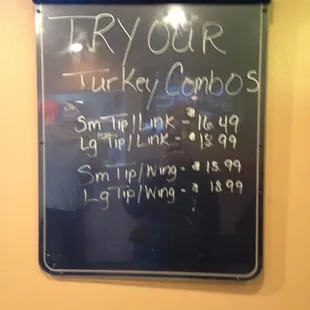 TRY OUR
Turkey Combos
Sm Tip/Link - $16.49
Lg Tip/Link - $18.99
Sm Tip/Wing - $15.99
Lg Tip/Wing - $18.99